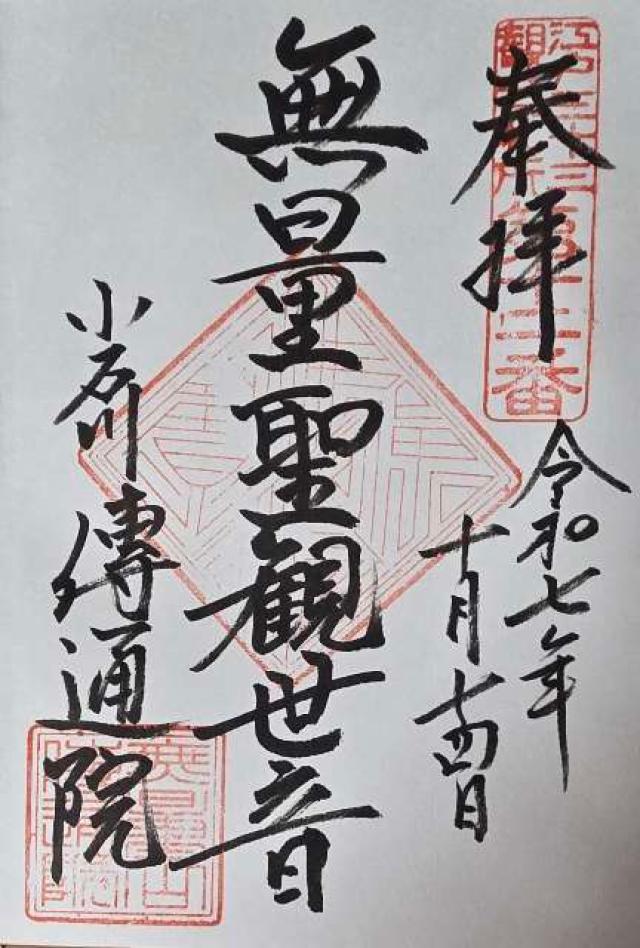 江戸三十三
観音札所
第十二番
奉拝
令和七年
十月
四日
無量聖観世音
小石川傳通院